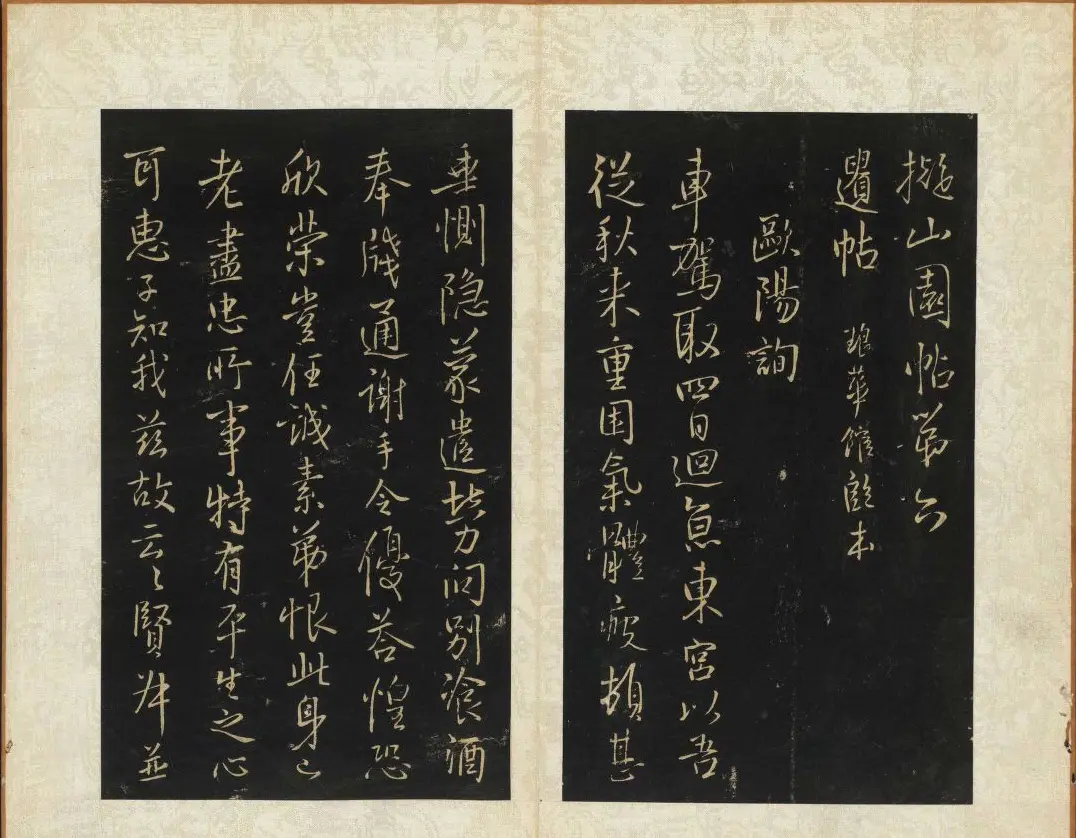 擬山園帖第六
遺帖 琅華館藏本
歐陽詢
車駕取四日迴思東宮以吾
從秋来重困氣體疲頓甚
垂惻隐蒙遣勞问别飡酒
奉牋通謝手令優荅惶恐
欣榮豈任誠素第恨此身已
老盡忠所事特有平生之心
耳惠子知我兹故云〻賢并並